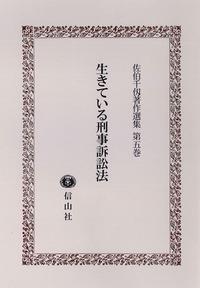 佐伯千仭著作選集 第五巻
生きている刑事訴訟法
信山社